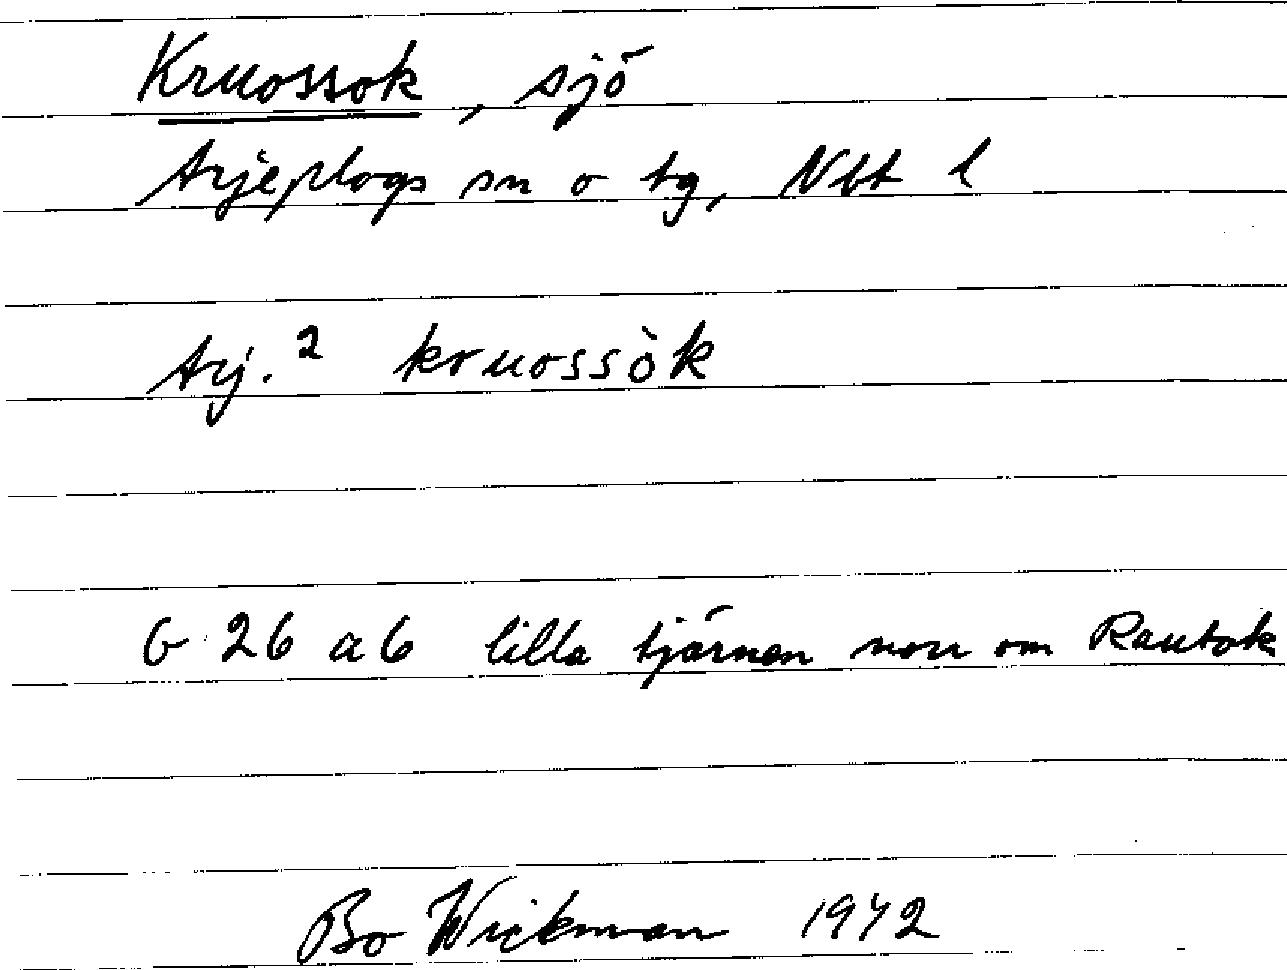 Kruossok, sjö
Arjeplogs sn o tg, Nbt l
Arj.² kruossòk
G 26 a 6 lilla tjärnen norr om Rautok
Bo Wickman 1942